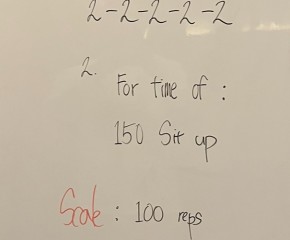 2-2-2-2-2
2.
For time of :
150 Sit up
Scale : 100 reps